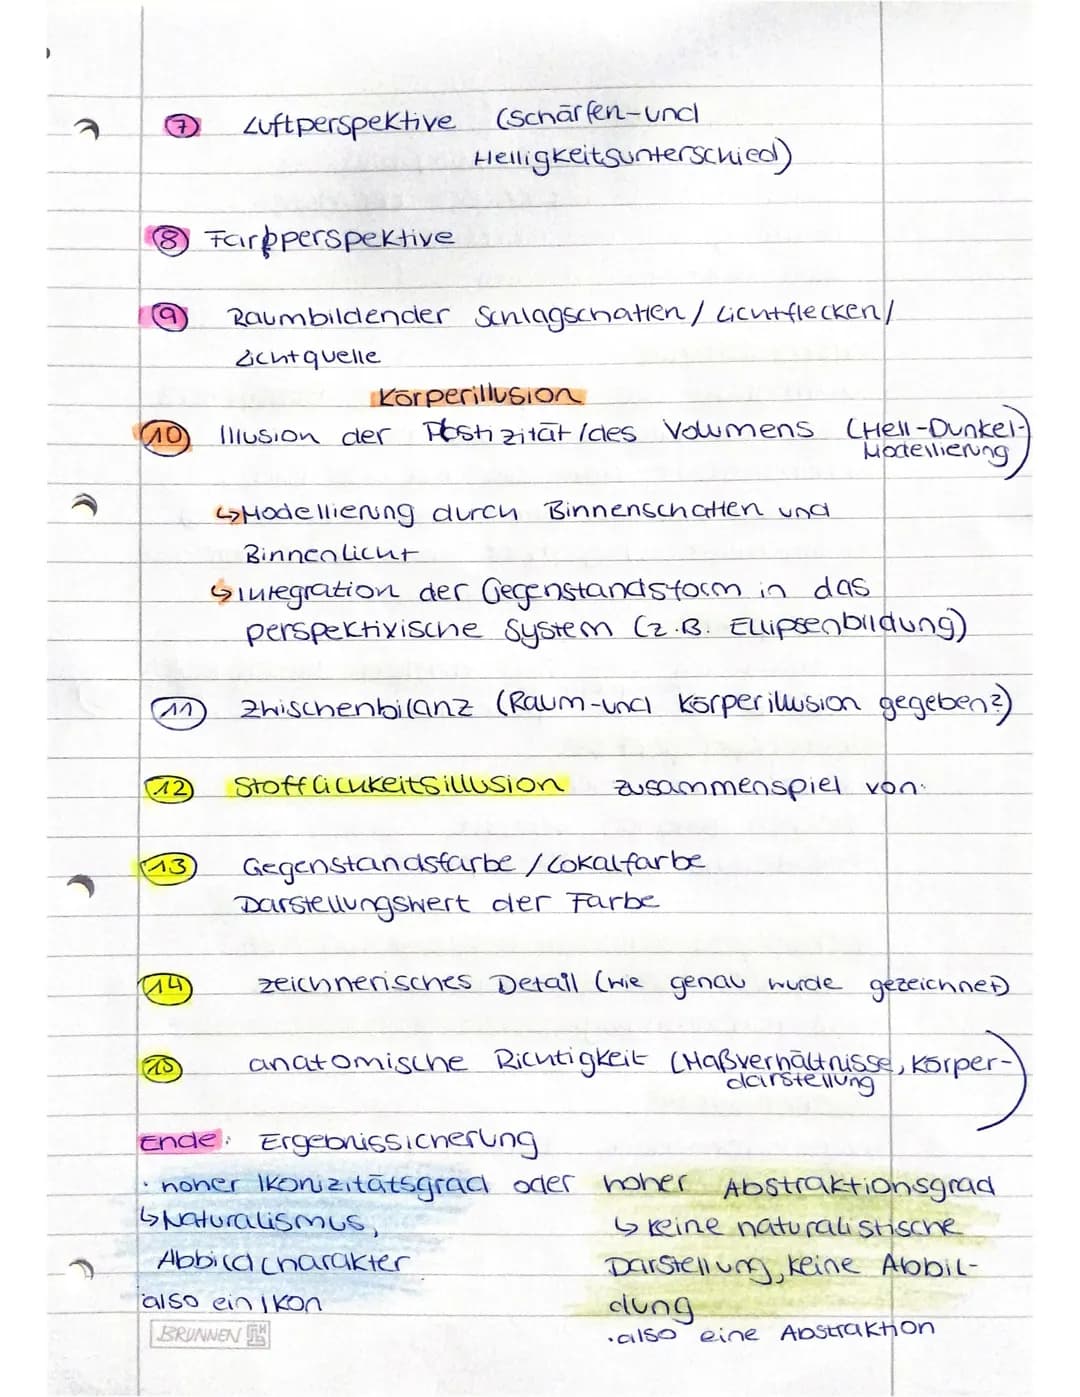 7 Luftperspektive (Schärfen-und
Helligkeitsunterschied)
8 Farbperspektive
9 Raumbildender Schlagschatten / Lichtflecken /
Lichtquelle
Körperillusion
10 Illusion der Plastizität / des Volumens (Hell-Dunkel-
Modellierung)
↳ Modellierung durch Binnenschatten und
Binnenlicht
↳ Integration der Gegenstandsform in das
perspektivische System (z.B. Ellipsenbildung)
11 Zwischenbilanz (Raum-und Körperillusion gegeben?)
12 Stofflichkeitsillusion zusammenspiel von:
13 Gegenstandsfarbe / Lokalfarbe
Darstellungswert der Farbe
14 zeichnerisches Detail (wie genau wurde gezeichnet)
15 anatomische Richtigkeit (Maßverhältnisse, Körper-
darstellung)
Ende: Ergebnissicherung
· hoher Ikonizitätsgrad oder hoher Abstraktionsgrad
↳ Naturalismus, ↳ keine naturalistische
Abbildcharakter Darstellung, keine Abbil-
also ein Ikon dung
BRUNNEN · also eine Abstraktion